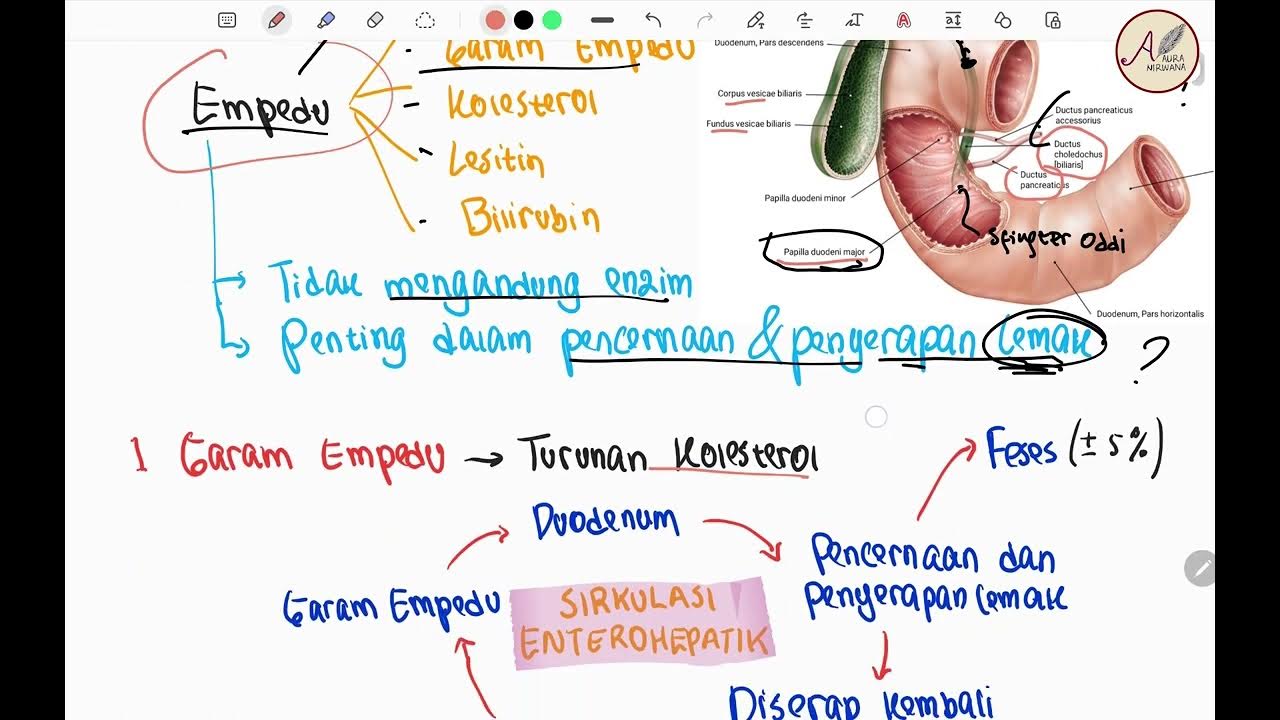 A
AURA
NIRWANA
Garam Empedu
Empedu
Kolesterol
Lesitin
Bilirubin
Duodenum, Pars descendens
Corpus vesicae biliaris
Fundus vesicae biliaris
Ductus pancreaticus
accessorius
Ductus
choledochus
[biliaris]
Ductus
pancreaticus
Papilla duodeni minor
Papilla duodeni major
Sfingter Oddi
Duodenum, Pars horizontalis
?
Tidak mengandung enzim
Penting dalam pencernaan & penyerapan lemak
?
1 Garam Empedu → Turunan Kolesterol
Feses (± 5%)
Duodenum
Pencernaan dan
Penyerapan lemak
Garam Empedu
SIRKULASI
ENTEROHEPATIK
Diserap kembali